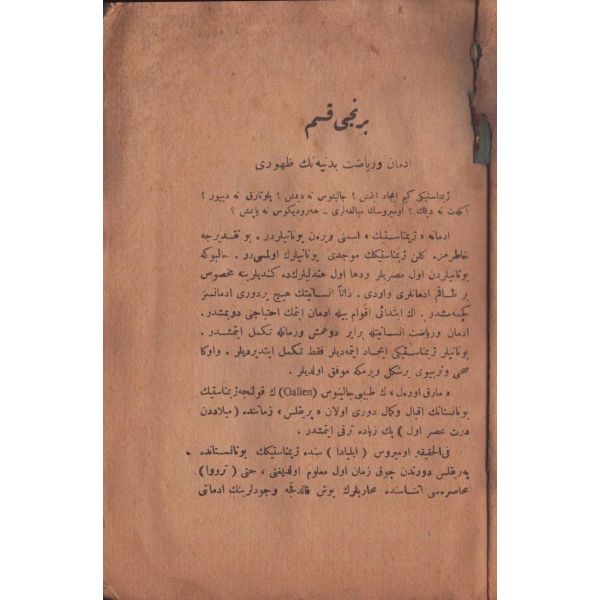 برنجى قسم
ادمان ورياضت بدنيه‌نك ظهورى
ژيمناستيكى كيم ايجاد ايتمش ؟ جالينوس نه ديمش ؟ پلوتارق نه دييور ؟
آتلت نه ديمك ؟ اوميروسك مبالغه‌لرى ـ هه‌روديكوس نه ياپمش ؟
ادمانه « ژيمناستيك » اسمنى ويرن يونانيلردر . بو تقديرجه
خاطرمزه كلن ژيمناستيكك موجدى يونانيلرك اولمسى‌در . حالبوكه
يونانيلردن اول مصريلر ودها اول هنديلرك‌ده كنديلرينه مخصوص
بر طاقم ادمانلرى واردى . ذاتاً انسانيتك هيچ بردورى ادمانسز
كچمه‌مشدر . اك ابتدائى اقوام بيله ادمان ايتمك احتياجنى دويمشدر .
ادمان ورياضت انسانيتله برابر دوغمش وزمانله تكمل ايتمشدر .
يونانيلر ژيمناستيكى ايجاد ايتمه‌ديلر فقط تكمل ايتديرديلر . واوكا
صحى وتربيوى برشكل ويرمكه موفق اولديلر .
« مارق اوره‌ل » ك طبيبى جالينوس (Galien) ك قولنجه ژيمناستيك
يونانستانك اقبال وكمال دورى اولان « پريقلس » زماننده ( ميلاددن
درت عصر اول ) پك زياده ترقى ايتمشدر .
فى‌الحقيقه اوميروس ( ايليادا ) سنده ژيمناستيكك يونانستانده
پەريقلس دورندن چوق زمان اول معلوم اولديغنى ، حتى ( تروواا )
محاصره‌سى اثناسنده محاربلرك بوش قالدقجه وجودلرينك ادمانى